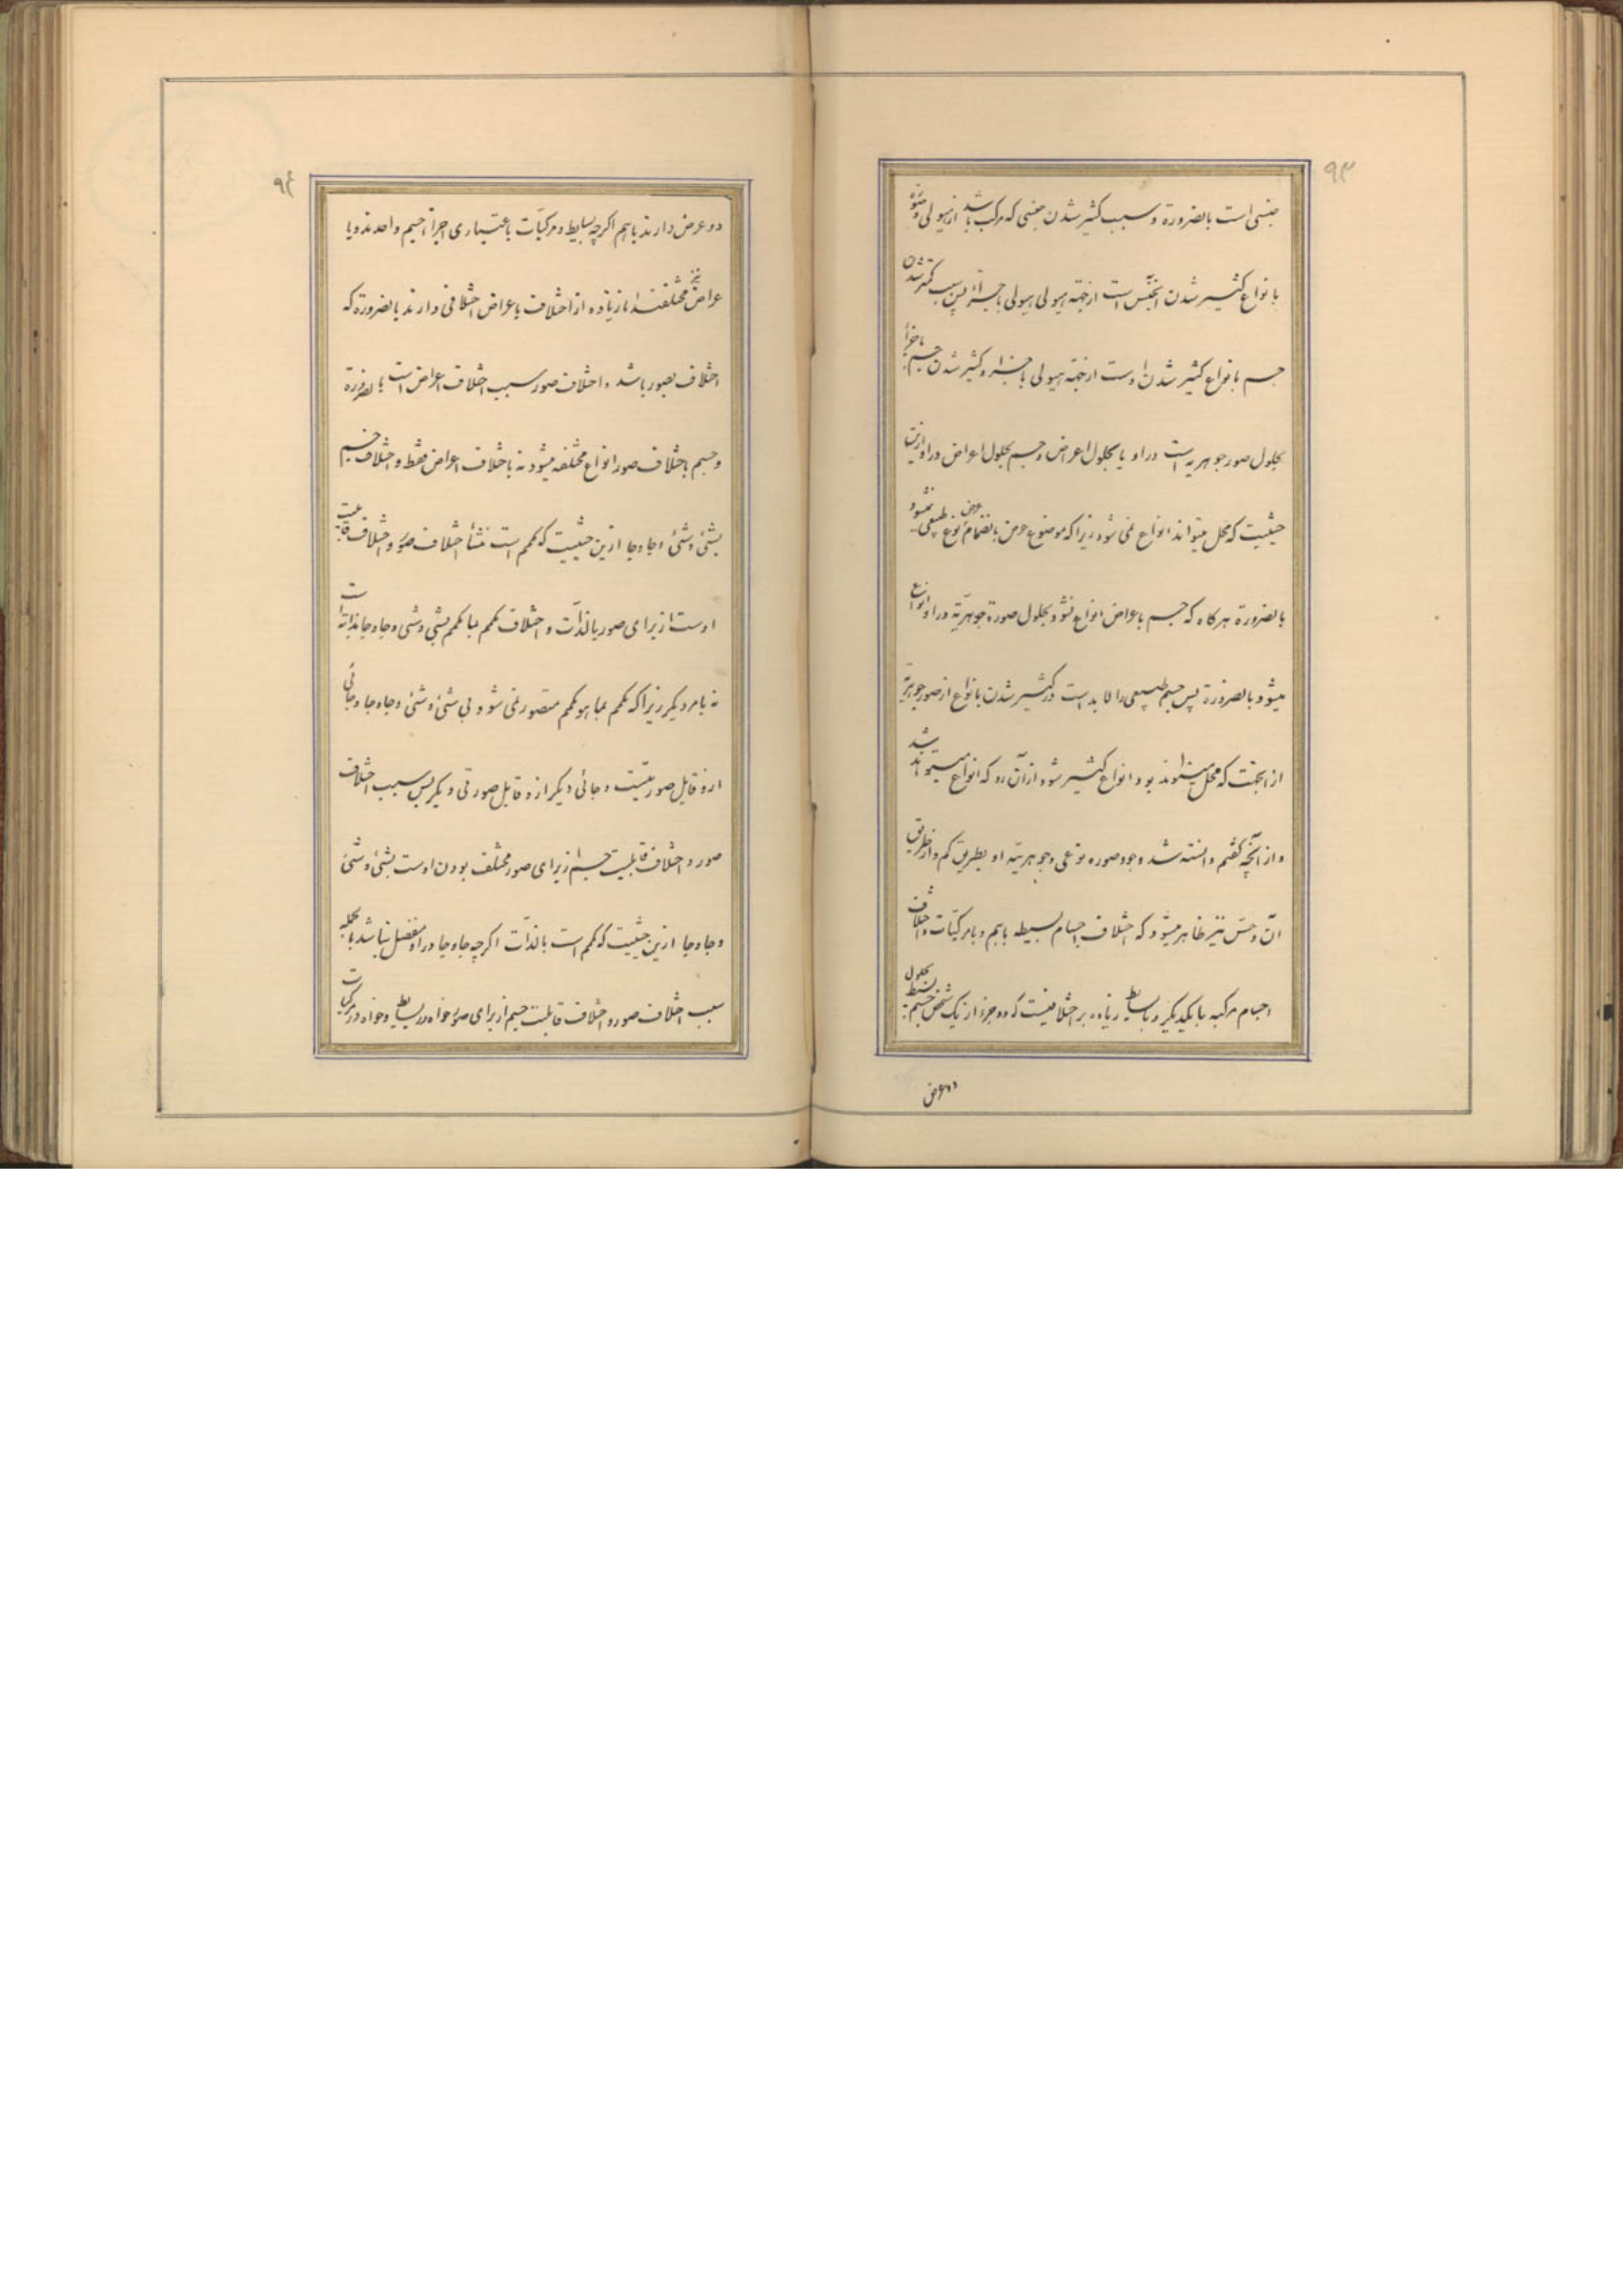 ۹۳
جنسی است بالضرورة و سبب کثیر شدن جنسی که مرکب باشد از هیولی و صورة
بانواع کثیر شدن آنجنس است از جهة هیولی هیولی باجزا پس سبب کثیر شدن
جسم بانواع کثیر شدن اوست از جهة هیولی باجزا و کثیر شدن جسم باجزا
بحلول صور جوهریه است در او یا بحلول اعراض و جسم بحلول اعراض در او ازین
حیثیت که محل میتواند انواع نمی شود زیرا که موضوع عرض بانضمام عرض نوع طبیعی نمیشود
بالضرورة هرکاه که جسم باعراض انواع نشود بحلول صورة جوهریّة در او انواع
میشود بالضرورة پس جسم طبیعی را لا بد است در کثیر شدن بانواع از صور جوهریّة
از اینجهت که محل میتوانند بود انواع کثیر شود از آن رو که انواع میتواند شد
و از آنچه کفتیم دانسته شد وجود صوره نوعی و جوهریّته او بطریق کم و از طریق
آن و حسّ نیز ظاهر میشود که اختلاف اجسام بسیطه باهم و بامرکبّات و اختلاف
اجسام مرکبه بایکدیکر و بابسایط زیاده بر اختلافیست که دو جزء از یک شخص جسم بسیط بحلول
دو عرض
۹۴
دو عرض دارند باهم اکرچه بسایط و مرکبّات باعتباری اجزآء جسم واحدند و با
عراض مختلفند اما زیاده از اختلاف باعراض اختلافی دارند بالضرورة که
اختلاف بصور باشد و اختلاف صور سبب اختلاف اعراض است بالضرورة
و جسم باختلاف صور انواع مختلفه میشود نه باختلاف اعراض فقط و اختلاف جسم
بشئ و شئ و جا و جا ازین حیثیت که کمم است منشأ اختلاف صور و اختلاف قابلیت
اوست از برای صور بالذات و اختلاف کمم بما کمم بشی و شی و جا و جا بذاته است
نه بامر دیکر زیرا که کمم بما هو کمم متصور نمی شود بی شئ و شئ و جا و جا و جائی
ازو قابل صورتیست و جائی دیکر ازو قابل صورتی دیکر پس سبب اختلاف
صور و اختلاف قابلیت جسم از برای صور مختلف بودن اوست بشئ و شئ
و جا و جا ازین حیثیت که کمم است بالذات اکرچه جا و جا در او منفصل نباشد بالجمله
سبب اختلاف صور و اختلاف قابلیت جسم از برای صور خواه در بسایط و خواه در مرکبات